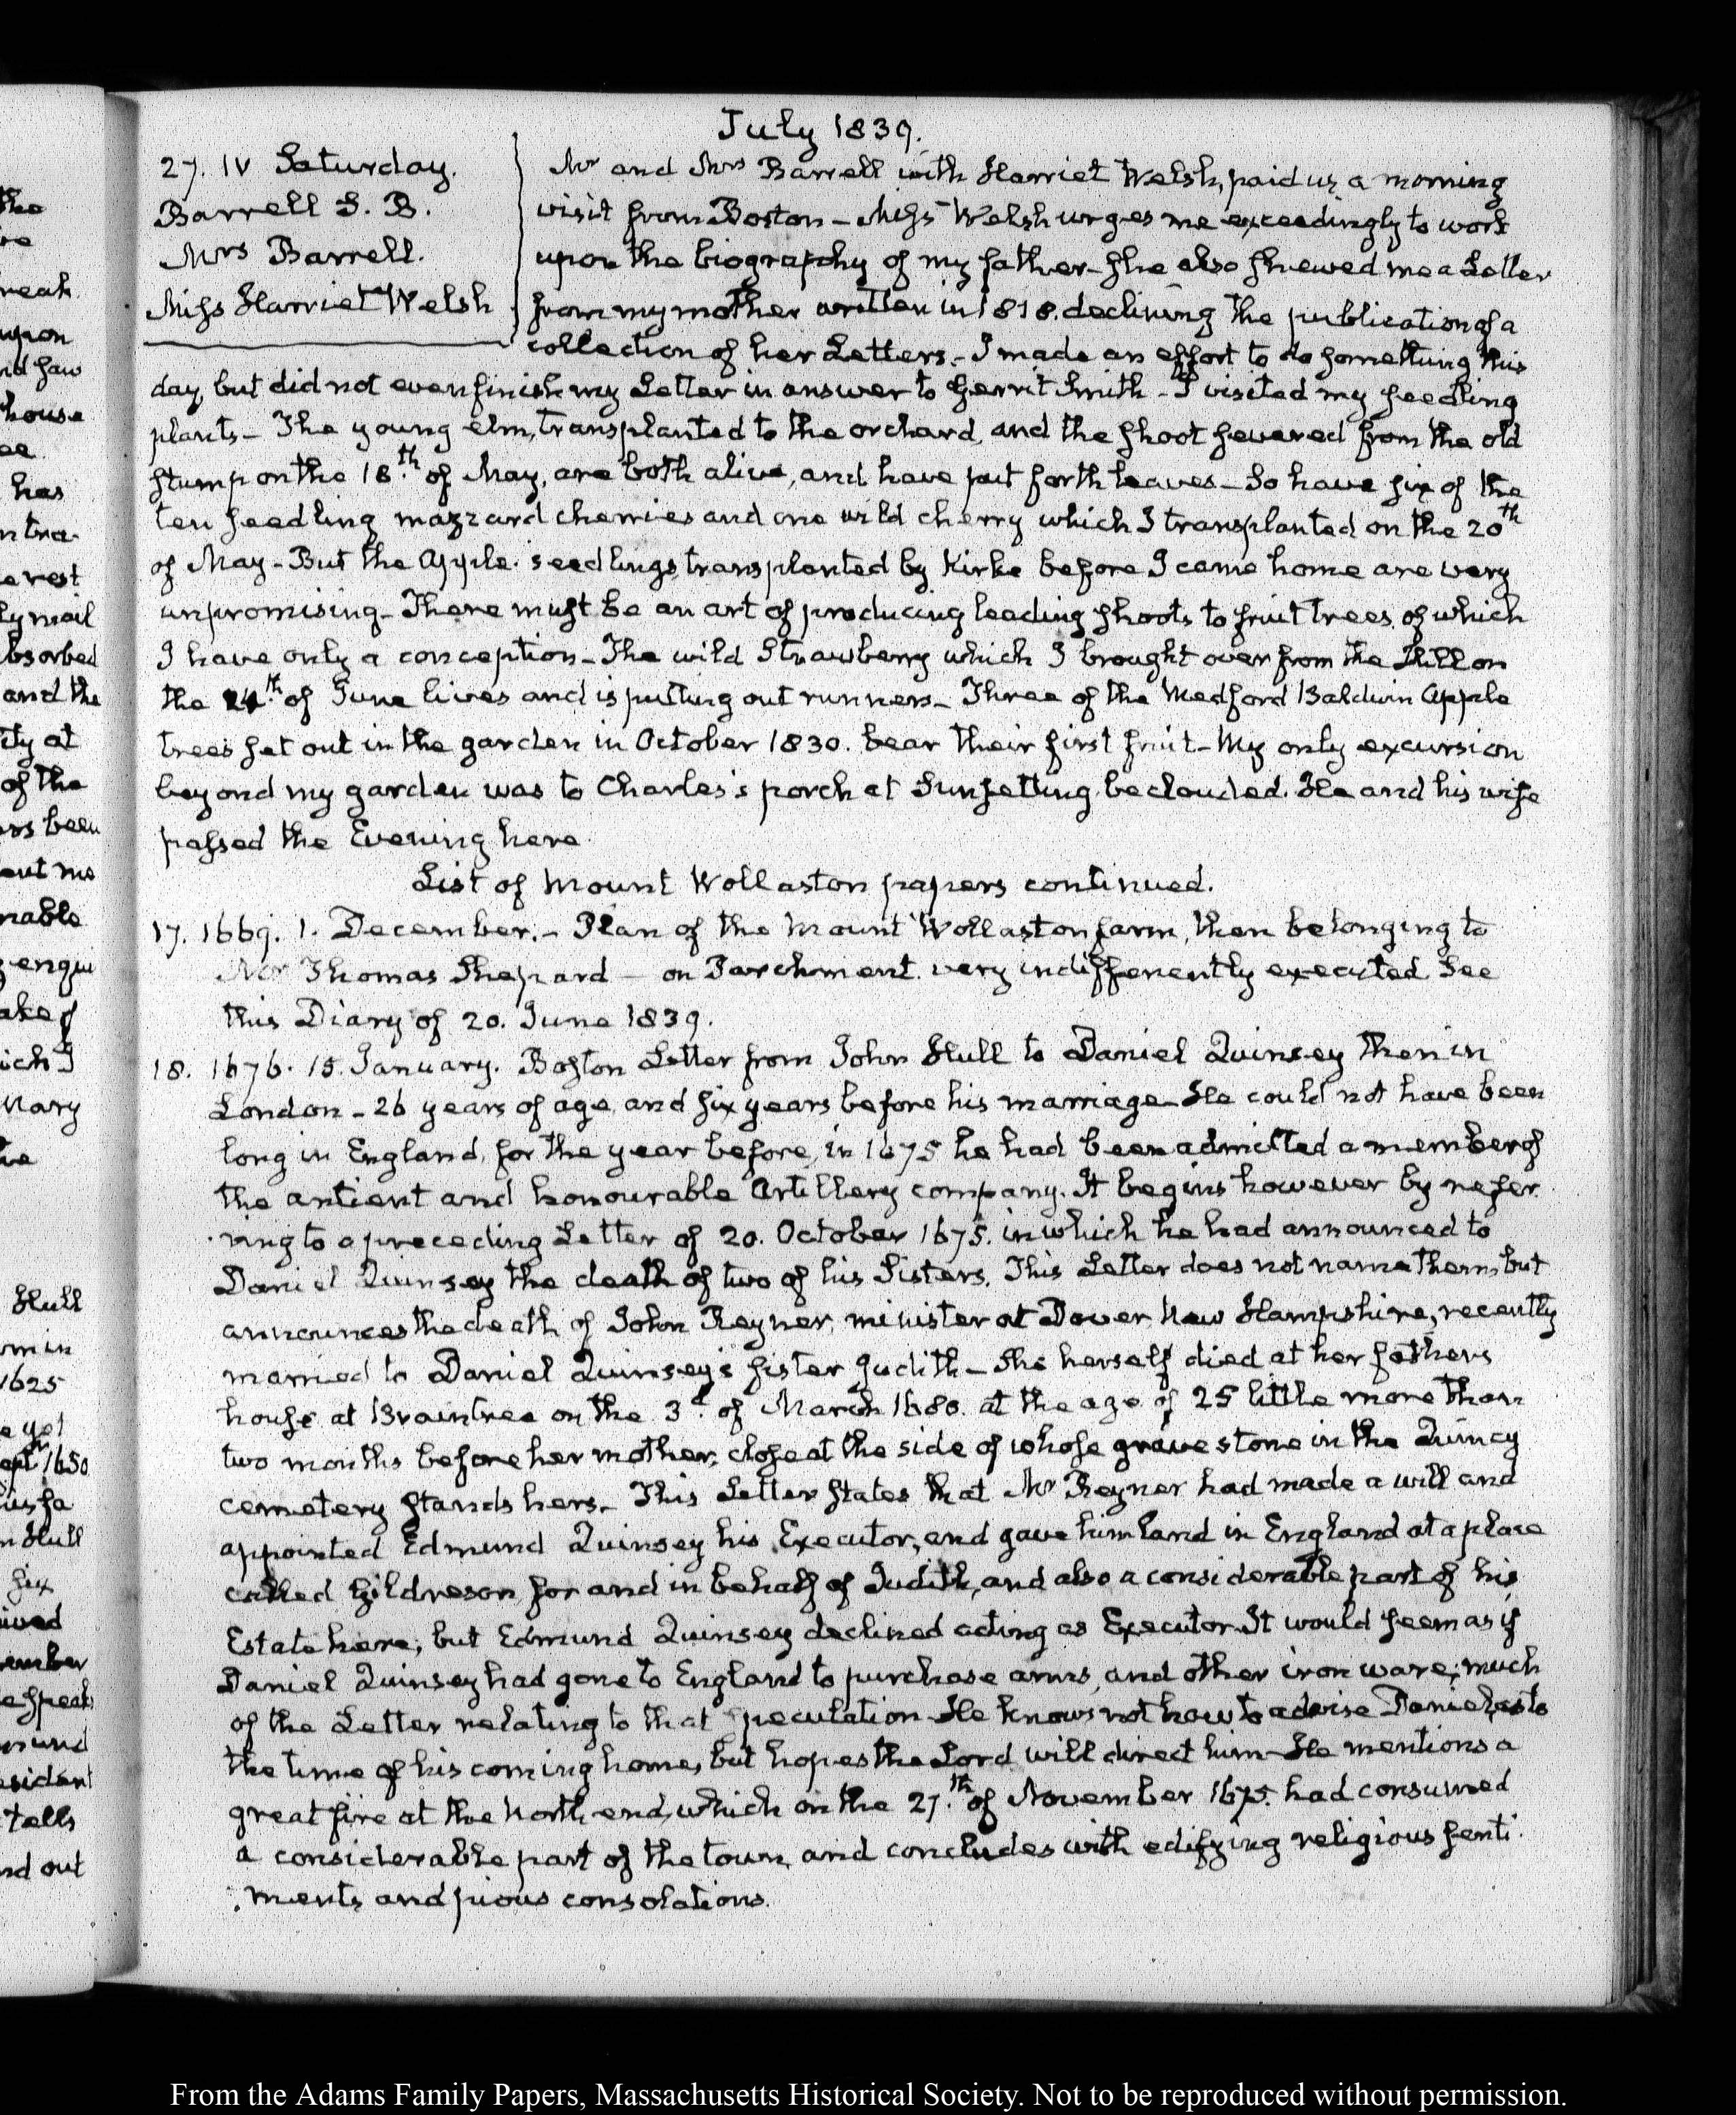 July 1839.
27. IV Saturday.
Barrell S. B.
Mrs Barrell.
Miss Harriet Welsh
Mr and Mrs Barrell with Harriet Welsh, paid us a morning
visit from Boston – Miss Welsh urges me exceedingly to work
upon the biography of my father – she also shewed me a Letter
from my mother written in 1818. declining the publication of a
collection of her Letters. – I made an effort to do something this
day, but did not even finish my Letter in answer to Gerrit Smith – I visited my seedling
plants – The young elm, transplanted to the orchard, and the shoot severed from the old
stump on the 18.th of May, are both alive, and have put forth leaves – So have six of the
ten seedling mazzard cherries and one wild cherry which I transplanted on the 20th
of May – But the Apple seedlings transplanted by Kirke before I came home are very
unpromising – There must be an art of producing leading shoots to fruit trees, of which
I have only a conception – The wild Strawberry which I brought over from the Hill on
the 24.th of June lives and is putting out runners – Three of the Medford Baldwin Apple
trees set out in the garden in October 1830. bear their first fruit – My only excursion
beyond my garden was to Charles's porch at Sunsetting beclouded. He and his wife
passed the Evening here
List of Mount Wollaston papers continued.
17. 1669. 1. December. – Plan of the Mount Wollaston farm, then belonging to
Mr Thomas Shepard – on Parchment. very indifferently executed See
this Diary of 20. June 1839.
18. 1676. 15. January. Boston Letter from John Hull to Daniel Quinsey then in
London – 26 years of age, and six years before his marriage – He could not have been
long in England, for the year before, in 1675 he had been admitted a member of
the antient and honourable Artillery company. It begins however by refer
ring to a preceding Letter of 20. October 1675. in which he had announced to
Daniel Quinsey the death of two of his Sisters. This Letter does not name them, but
announces the death of John Reyner, minister at Dover New Hampshire, recently
married to Daniel Quinsey's sister Judith – She herself died at her fathers
house at Braintree on the 3.d of March 1680. at the age of 25 little more than
two months before her mother, close at the side of whose gravestone in the Quincy
cemetery stands hers – This Letter states that Mr Reyner had made a will and
appointed Edmund Quinsey his Executor, and gave him land in England at a place
called Gildreson for and in behalf of Judith, and also a considerable part of his
Estate here; but Edmund Quinsey declined acting as Executor. It would seem as if
Daniel Quinsey had gone to England to purchase arms, and other iron ware; much
of the Letter relating to that speculation He knows not how to advise Daniel, as to
the time of his coming home, but hopes the Lord will direct him – He mentions a
great fire at the North end, which on the 27.th of November 1675. had consumed
a considerable part of the town, and concludes with edifying religious senti
ments and pious consolations.
From the Adams Family Papers, Massachusetts Historical Society. Not to be reproduced without permission.